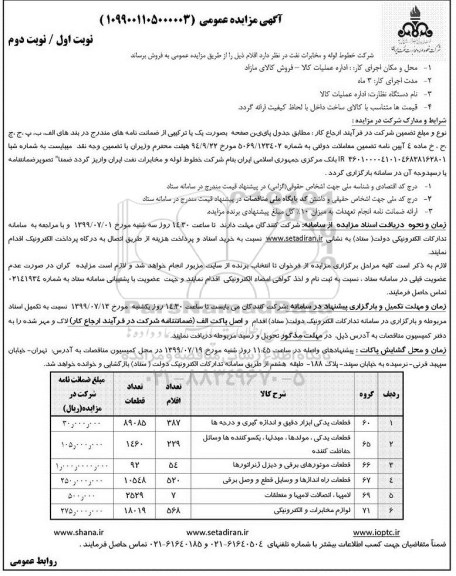 آگهی مزایده عمومی (۱۰۹۹۰۰۱۱۰۵۰۰۰۰۰۳)
نوبت اول / نوبت دوم
شرکت خطوط لوله و مخابرات نفت در نظر دارد اقلام ذیل را از طریق مزایده عمومی به فروش برساند
۱- محل و مکان اجرای کار: اداره عملیات کالا – فروش کالای مازاد
۲- مدت اجرای کار: ۳ ماه
۳- نام دستگاه نظارت: اداره عملیات کالا
۴- قیمت ها متناسب با کالای ساخت داخل با لحاظ کیفیت ارائه گردد.
شرایط و مدارک شرکت در مزایده :
نوع و مبلغ تضمین شرکت در فرآیند ارجاع کار : مطابق جدول پایین صفحه بصورت یک یا ترکیبی از ضمانت نامه های مندرج در بند های الف، ب، پ، ج، چ
، ح، خ ماده ۴ آیین نامه تضمین معاملات دولتی به شماره ۱۲۳۴۰۲/ت۵۰۶۵۹ مورخ ۹۴/۹/۲۲ هیئت محترم وزیران یا تضمین وجه نقد میبایست به شماره شبا
بانک مرکزی جمهوری اسلامی ایران بنام شرکت خطوط لوله و مخابرات نفت ایران واریز گردد ضمنا" تصویرضمانتنامه
یا رسیدوجه آن در سامانه بارگزاری گردد .
۱- درج کد اقتصادی و شناسه ملی جهت اشخاص حقوقی(الزامی) در پیشنهاد قیمت مندرج در سامانه ستاد
۲- درج کد ملی جهت اشخاص حقیقی و داشتن کد پایگاه ملی مناقصات در پیشنهاد قیمت مندرج در سامانه ستاد
۳- ارائه ضمانت نامه انجام تعهدات به میزان ۱۰٪ کل مبلغ پیشنهادی برنده مزایده.
زمان و نحوه دریافت اسناد مزایده از سامانه: شرکت کنندگان مهلت دارند تا ساعت ۱۴:۳۰ روز سه شنبه مورخ ۱۳۹۹/۰۷/۰۱ و با مراجعه به سامانه
تدارکات الکترونیکی دولت( ستاد) به نشانی www.setadiran.ir نسبت به خرید اسناد و پرداخت هزینه از طریق اتصال به درگاه پرداخت الکترونیک اقدام
نمایند.
لازم به ذکر است کلیه مراحل برگزاری مزایده از فرخوان تا انتخاب برنده از سایت مزبور انجام خواهد شد و لازم است مزایده گران در صورت عدم
عضویت قبلی در سامانه ستاد ، نسبت به ثبت نام و اخذ گواهی امضاء الکترونیکی اقدام نمایند و جهت عضویت با پشتیبانی سامانه ستاد به شماره ۰۲۱۴۱۹۳۴
تماس حاصل فرمایند.
زمان و مهلت تکمیل و بارگزاری پیشنهاد در سامانه :شرکت کنندگان می بایست تا ساعت ۱۴:۳۰ روز یکشنبه مورخ ۱۳۹۹/۰۷/۱۳ نسبت به تکمیل اسناد
مربوطه و بارگزاری در سامانه تدارکات الکترونیک دولت( ستاد) اقدام و اصل پاکت الف (ضمانتنامه شرکت در فرآیند ارجاع کار) لاک و مهر شده را به
دفتر کمیسیون مناقصات به آدرس ذیل، در مهلت مذکور تحویل و رسید مربوطه دریافت نمایند.
زمان و محل گشایش پاکات : پیشنهادهای واصله در ساعت ۱۱:۴۵ روز شنبه مورخ ۱۳۹۹/۰۷/۱۹ در محل کمیسیون مناقصات به آدرس: تهران- خیابان
سپهبد قرنی- نرسیده به خیابان سپند- پلاک ۱۸۸- طبقه هشتم از طریق سامانه تدارکات الکترونیک دولت ( ستاد) بازگشایی و خوانده خواهد شد.
۰۲۱-۸۸۳۴۹۶۷۰-۵
ردیف گروه شرح کالا تعداد اقلام تعداد قطعات مبلغ ضمانت نامه شرکت در مزایده(ریال)
۱ ۶۰ قطعات یدکی ابزار دقیق و اندازه گیری و درجه ها ۳۸۷ ۸۹۰۸۵ ۳۰,۰۰۰,۰۰۰
۲ ۶۵ قطعات یدکی ، مولدها ، مبدلها، یکسوکننده ها وسائل حفاظت کننده ۲۲۹ ۱۴۶۰ ۱۰۵,۰۰۰,۰۰۰
۳ ۶۶ قطعات موتورهای برقی و دیزل ژنراتورها ۵۴ ۹۲ ۱,۰۰۰,۰۰۰,۰۰۰
۴ ۶۷ قطعات راه اندازها و وسایل قطع و وصل برقی ۵۲۰ ۱۰۵۴۸ ۲۵۰,۰۰۰,۰۰۰
۵ ۶۹ لامپها ، اتصالات لامپها و متعلقات ۷ ۲۵۲۹ ۵۰۰,۰۰۰
۶ ۷۱ لوازم مخابرات و الکترونیکی ۵۶۸ ۱۸۰۱۹ ۲۷۵,۰۰۰,۰۰۰
www.ioptc.ir www.setadiran.ir www.shana.ir
ضمناً متقاضیان جهت کسب اطلاعات بیشتر با شماره تلفنهای ۰۲۱-۶۱۶۴۰۵۰۴ و ۰۲۱-۶۱۶۴۰۱۸۵ تماس حاصل فرمایند .
روابط عمومی